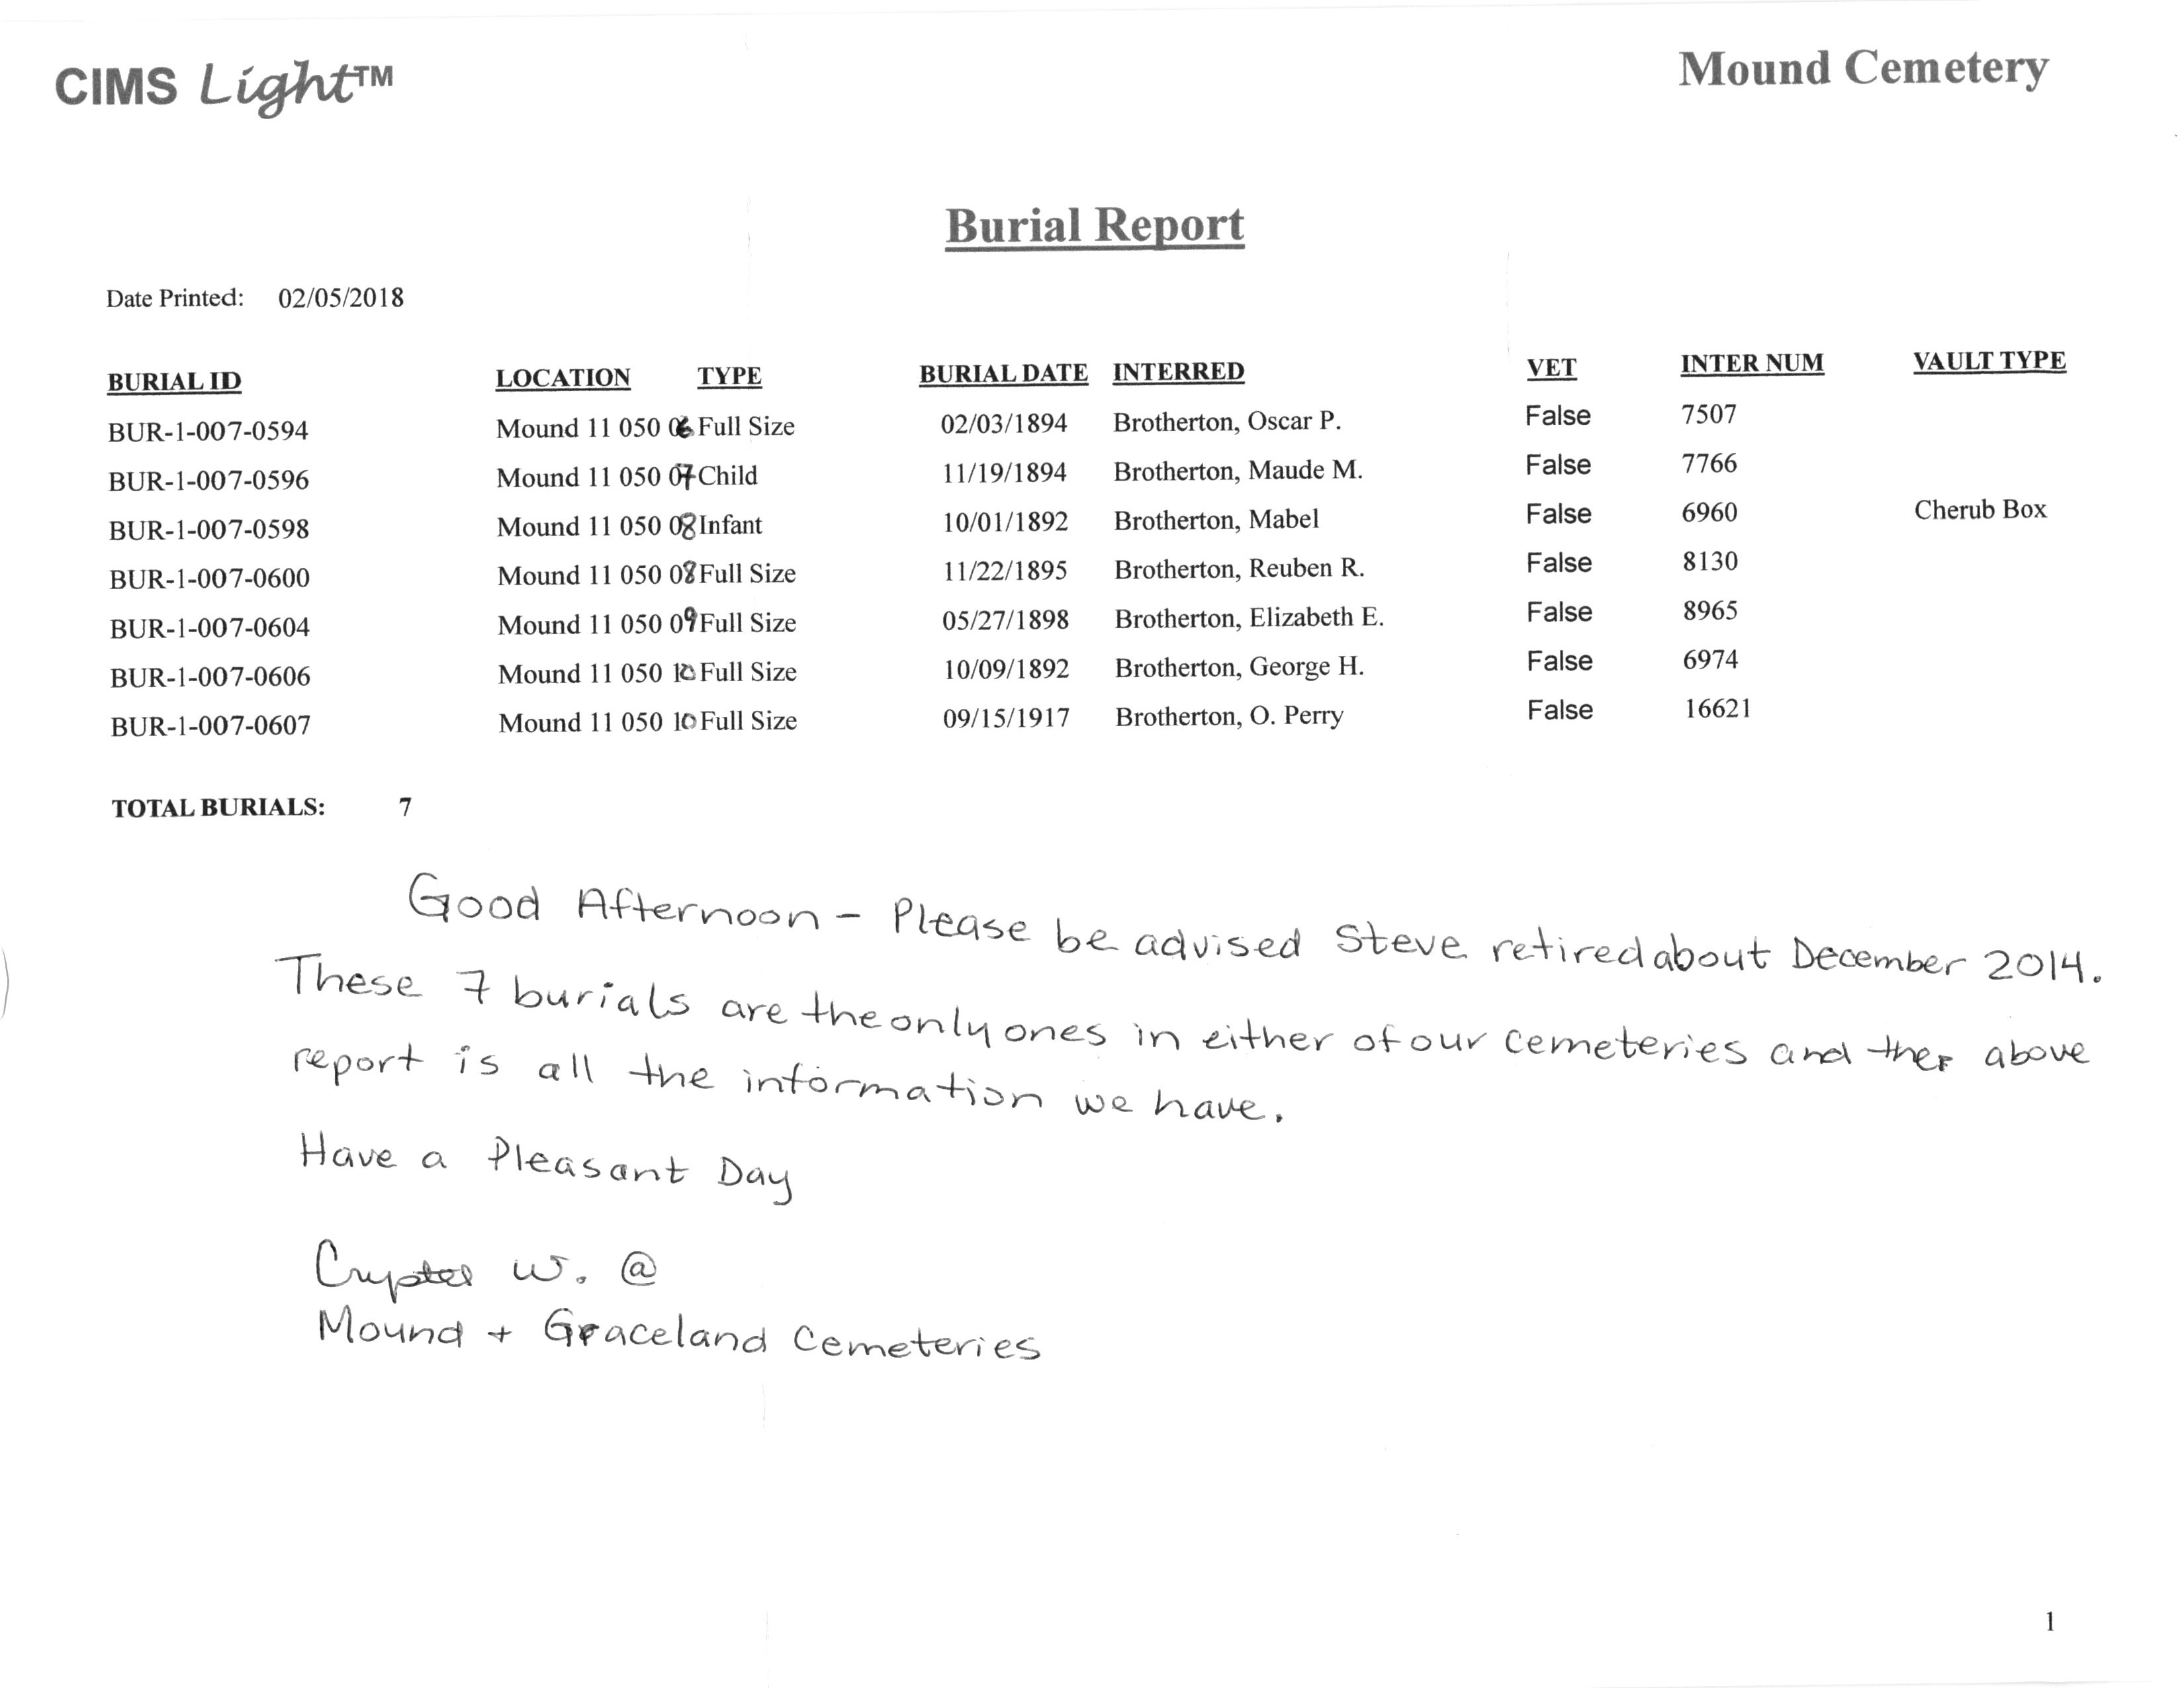 CIMS Light™ Mound Cemetery
Burial Report
Date Printed: 02/05/2018
BURIAL ID LOCATION TYPE BURIAL DATE INTERRED VET INTER NUM VAULT TYPE
BUR-1-007-0594 Mound 11 050 06 Full Size 02/03/1894 Brotherton, Oscar P. False 7507
BUR-1-007-0596 Mound 11 050 07 Child 11/19/1894 Brotherton, Maude M. False 7766
BUR-1-007-0598 Mound 11 050 08 Infant 10/01/1892 Brotherton, Mabel False 6960 Cherub Box
BUR-1-007-0600 Mound 11 050 08 Full Size 11/22/1895 Brotherton, Reuben R. False 8130
BUR-1-007-0604 Mound 11 050 09 Full Size 05/27/1898 Brotherton, Elizabeth E. False 8965
BUR-1-007-0606 Mound 11 050 10 Full Size 10/09/1892 Brotherton, George H. False 6974
BUR-1-007-0607 Mound 11 050 10 Full Size 09/15/1917 Brotherton, O. Perry False 16621
TOTAL BURIALS: 7
Good Afternoon - Please be advised Steve retired about December 2014.
These 7 burials are the only ones in either of our cemeteries and the above
report is all the information we have.
Have a Pleasant Day
W. @
Mound + Graceland Cemeteries
1